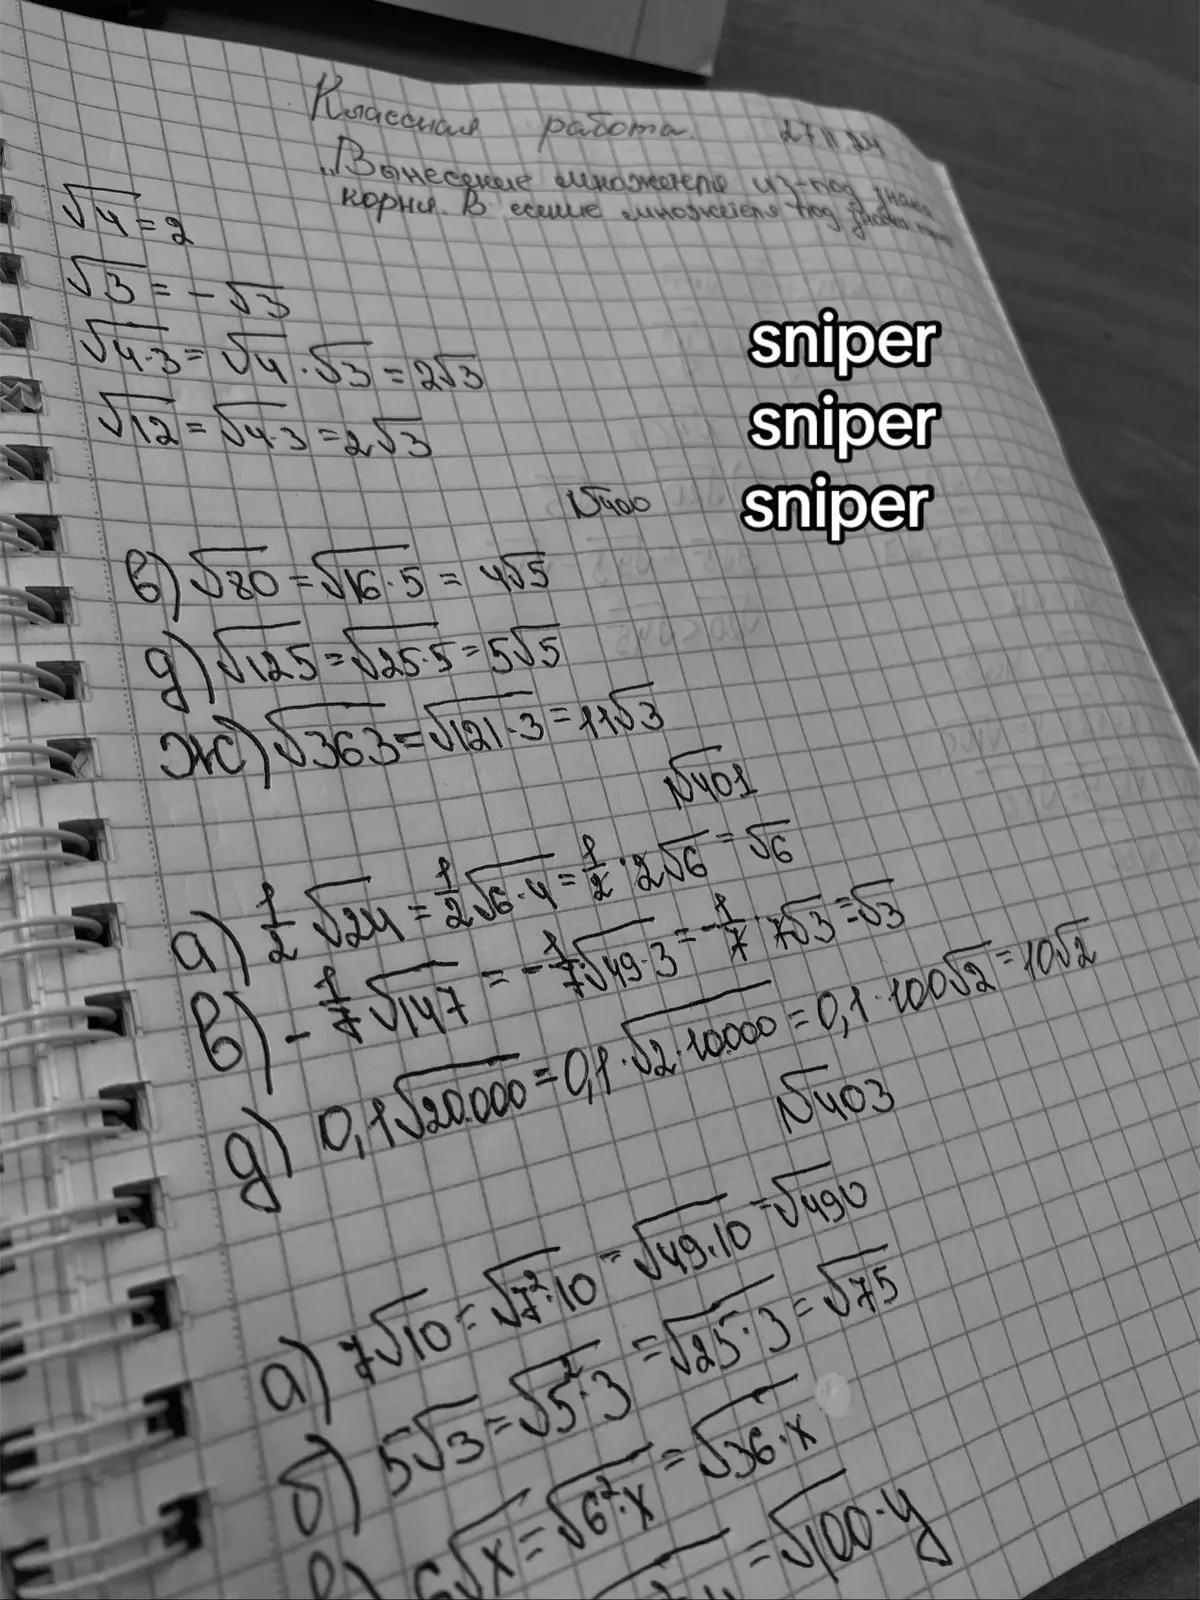 Классная работа. 27.11.24
„Вынесение множителя из-под знака
корня. В есение множителя под знака
√4 = 2
√3 = - √3
√4·3 = √4 · √3 = 2√3
√12 = √4·3 = 2√3
sniper
sniper
sniper
№400
в) √80 = √16·5 = 4√5
д) √125 = √25·5 = 5√5
ж) √363 = √121·3 = 11√3
№401
а) 1/2 √24 = 1/2 √6·4 = 1/2 · 2√6 = √6
в) - 1/7 √147 = - 1/7 √49·3 = - 1/7 · 7√3 = √3
д) 0,1√20.000 = 0,1·√2·10.000 = 0,1·100√2 = 10√2
№403
а) 7√10 = √7²·10 = √49·10 = √490
б) 5√3 = √5²·3 = √25·3 = √75
в) 6√x = √6²·x = √36·x
= √100·y